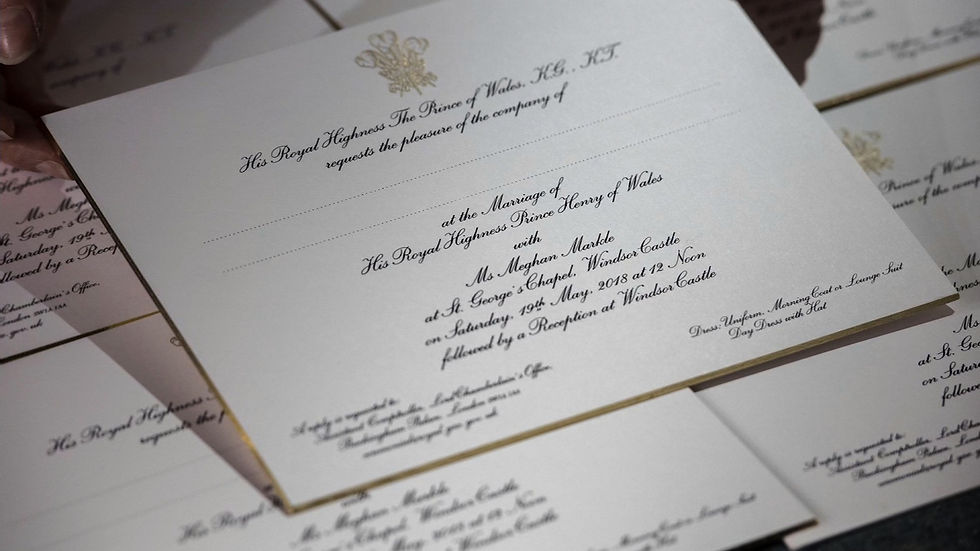 His Royal Highness The Prince of Wales, K.G., K.T.
requests the pleasure of the company of
at the Marriage of
His Royal Highness Prince Henry of Wales
with
Ms Meghan Markle
at St. George's Chapel, Windsor Castle
on Saturday, 19th May, 2018 at 12 Noon
followed by a Reception at Windsor Castle
Dress: Uniform, Morning Coat or Lounge Suit
Day Dress with Hat
A reply is requested to:
Assistant Comptroller, Lord Chamberlain's Office,
Buckingham Palace, London SW1A 1AA
company of
Ms Megh
St. George's Cha
Saturday, 19th
followed by a Recep
Chamberlain's Office,
London SW1A 1AA
His Royal Highness
requests the p
His Royal H
with
Ms Meghan Markle
Chapel, Windsor Castle
May, 2018 at 12 Noon
Morning Coat or Lounge Suit
Prince of Wales
Ms
at St. Geo
on Satur
follow
A reply is requested to:
Assistant Comptroller, Lord Cham
Buckingham Palace, London